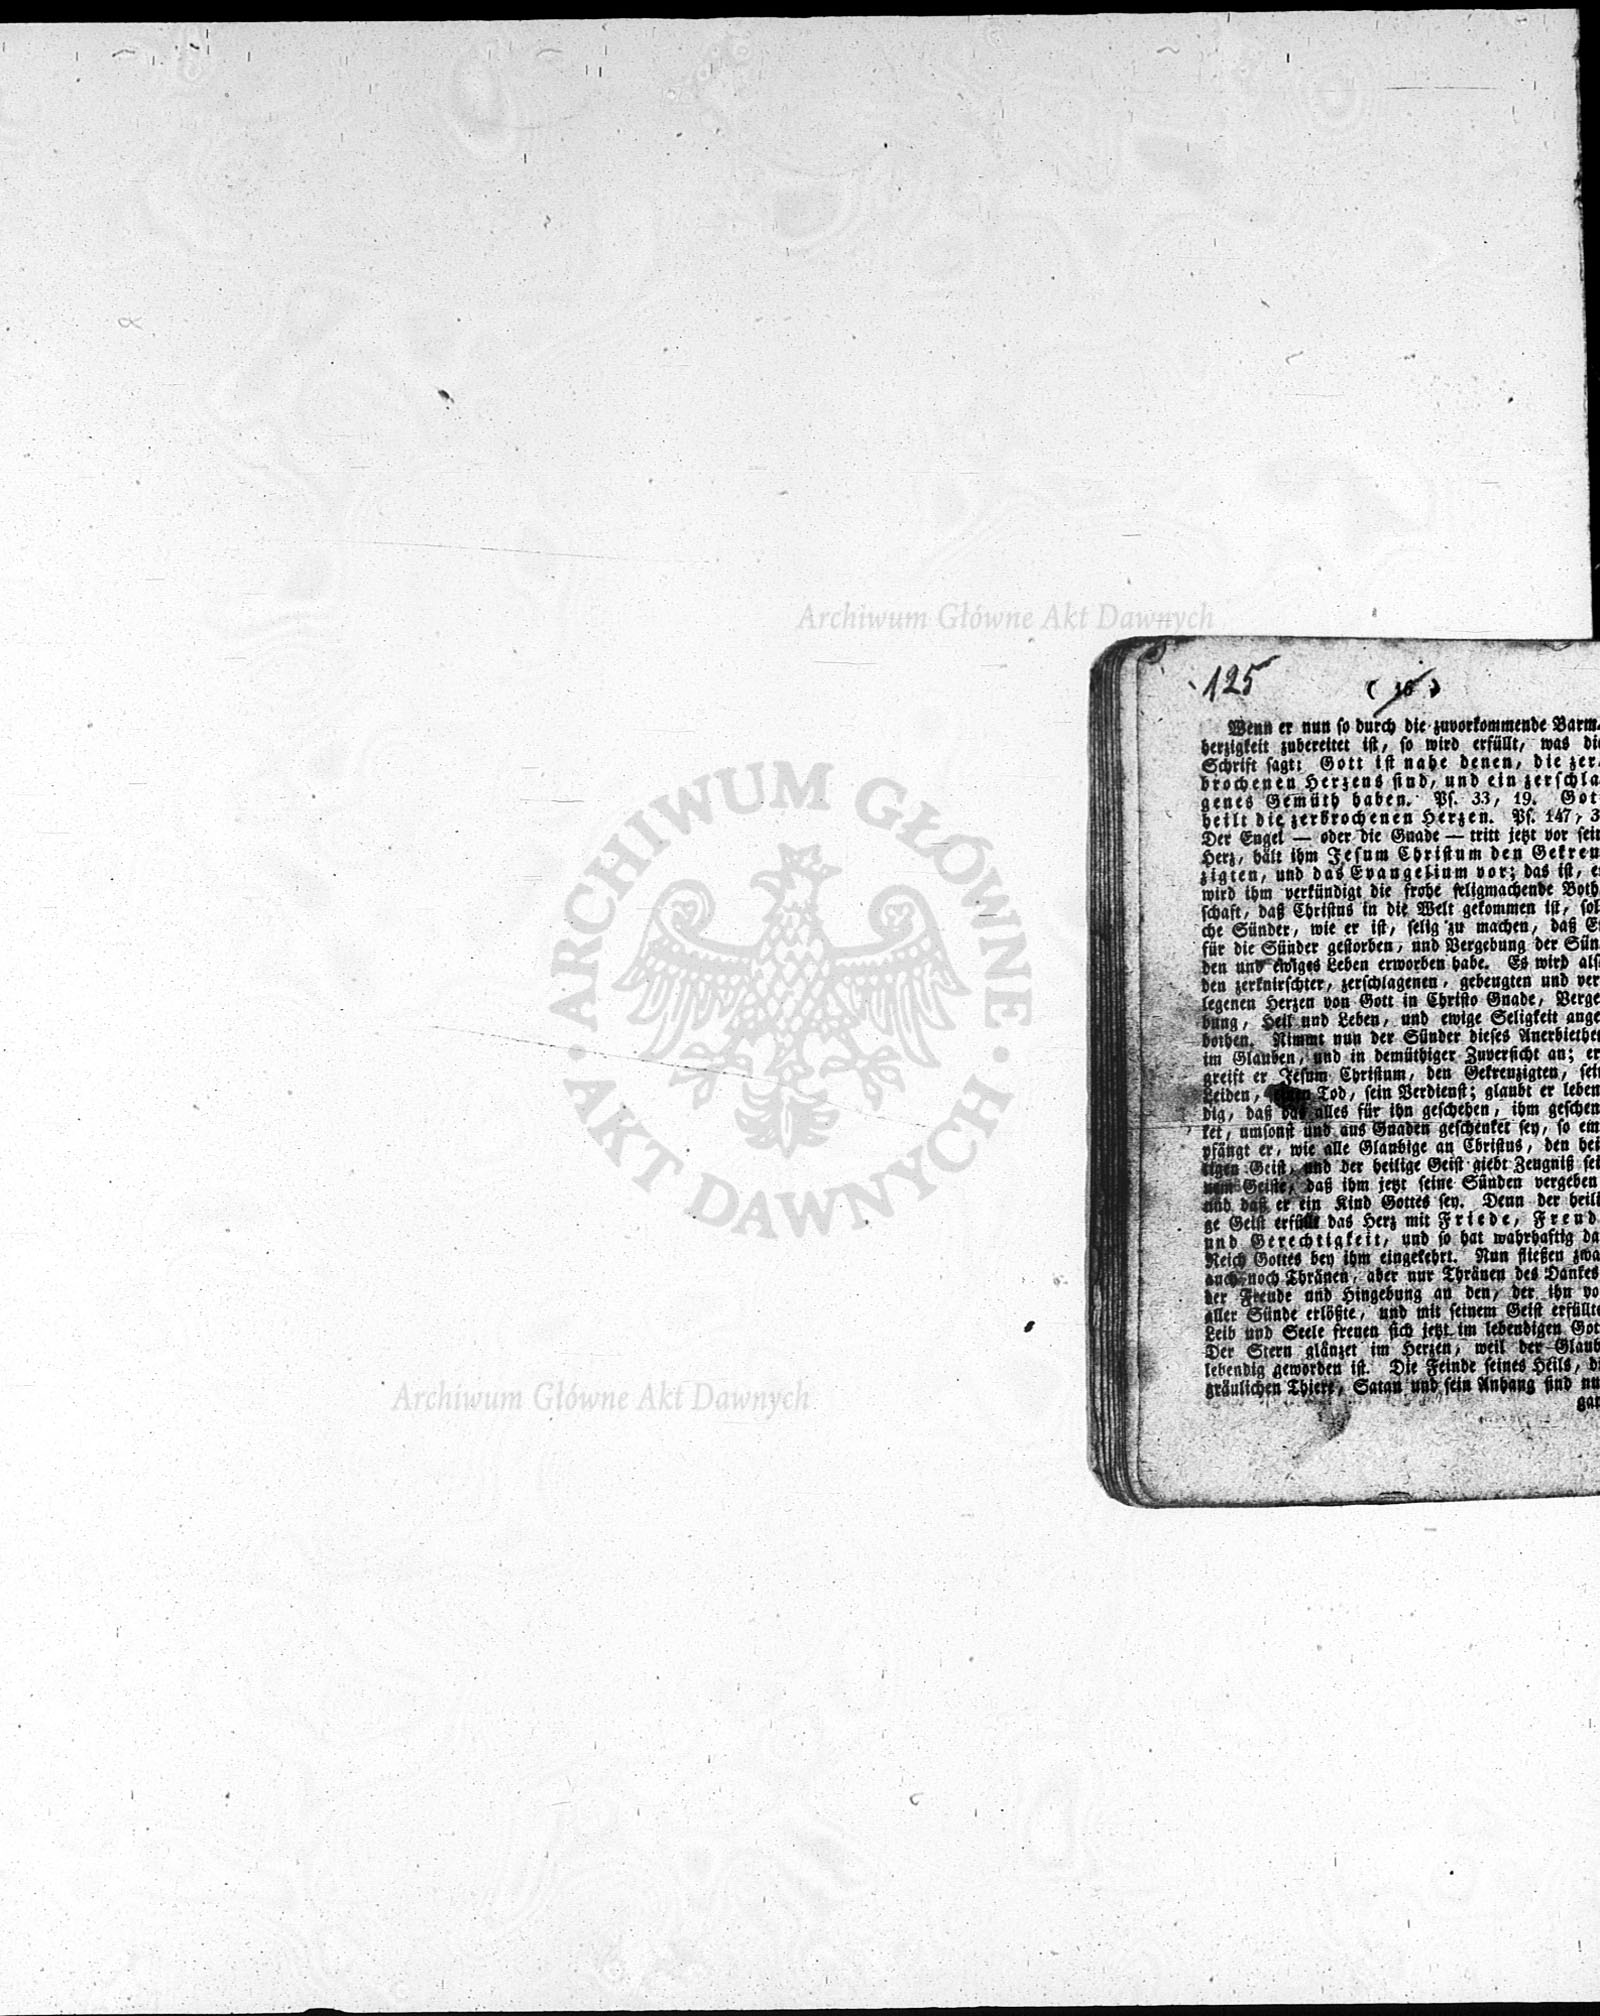 Archiwum Główne Akt Dawnych
125
( 16 )
Wenn er nun so durch die zuvorkommende Barm-
herzigkeit zubereitet ist, so wird erfüllt, was die
Schrift sagt: Gott ist nahe denen, die zer-
brochenen Herzens sind, und ein zerschla-
genes Gemüth haben. Ps. 33, 19. Gott
heilt die zerbrochenen Herzen. Ps. 147, 3
Der Engel — oder die Gnade — tritt jetzt vor sein
Herz, hält ihm Jesum Christum den Gekreu-
zigten, und das Evangelium vor; das ist, es
wird ihm verkündigt die frohe seligmachende Both-
schaft, daß Christus in die Welt gekommen ist, sol-
che Sünder, wie er ist, selig zu machen, daß Er
für die Sünder gestorben, und Vergebung der Sün-
den und ewiges Leben erworben habe. Es wird also
den zerknirschter, zerschlagenen, gebeugten und ver-
legenen Herzen von Gott in Christo Gnade, Verge-
bung, Heil und Leben, und ewige Seligkeit ange-
bothen. Nimmt nun der Sünder dieses Anerbiethen
im Glauben, und in demüthiger Zuversicht an; er-
greift er Jesum Christum, den Gekreuzigten, sein
Leiden, Tod, sein Verdienst; glaubt er leben-
dig, daß das alles für ihn geschehen, ihm geschen-
ket, umsonst und aus Gnaden geschenket sey, so em-
pfängt er, wie alle Glaubige an Christus, den hei-
ligen Geist, und der heilige Geist giebt Zeugniß sei-
nem Geiste, daß ihm jetzt seine Sünden vergeben
und daß er ein Kind Gottes sey. Denn der heili-
ge Geist erfüllt das Herz mit Friede, Freud
und Gerechtigkeit, und so hat wahrhaftig da
Reich Gottes bey ihm eingekehrt. Nun fließen zwa
auch noch Thränen, aber nur Thränen des Dankes
der Freude und Hingebung an den, der ihn vo
aller Sünde erlößte, und mit seinem Geist erfüllte
Leib und Seele freuen sich jetzt im lebendigen Got
Der Stern glänzet im Herzen, weil der Glaub
lebendig geworden ist. Die Feinde seines Heils, di
gräulichen Thiere, Satan und sein Anhang sind nu
gan
ARCHIWUM GŁÓWNE
AKT DAWNYCH
Archiwum Główne Akt Dawnych